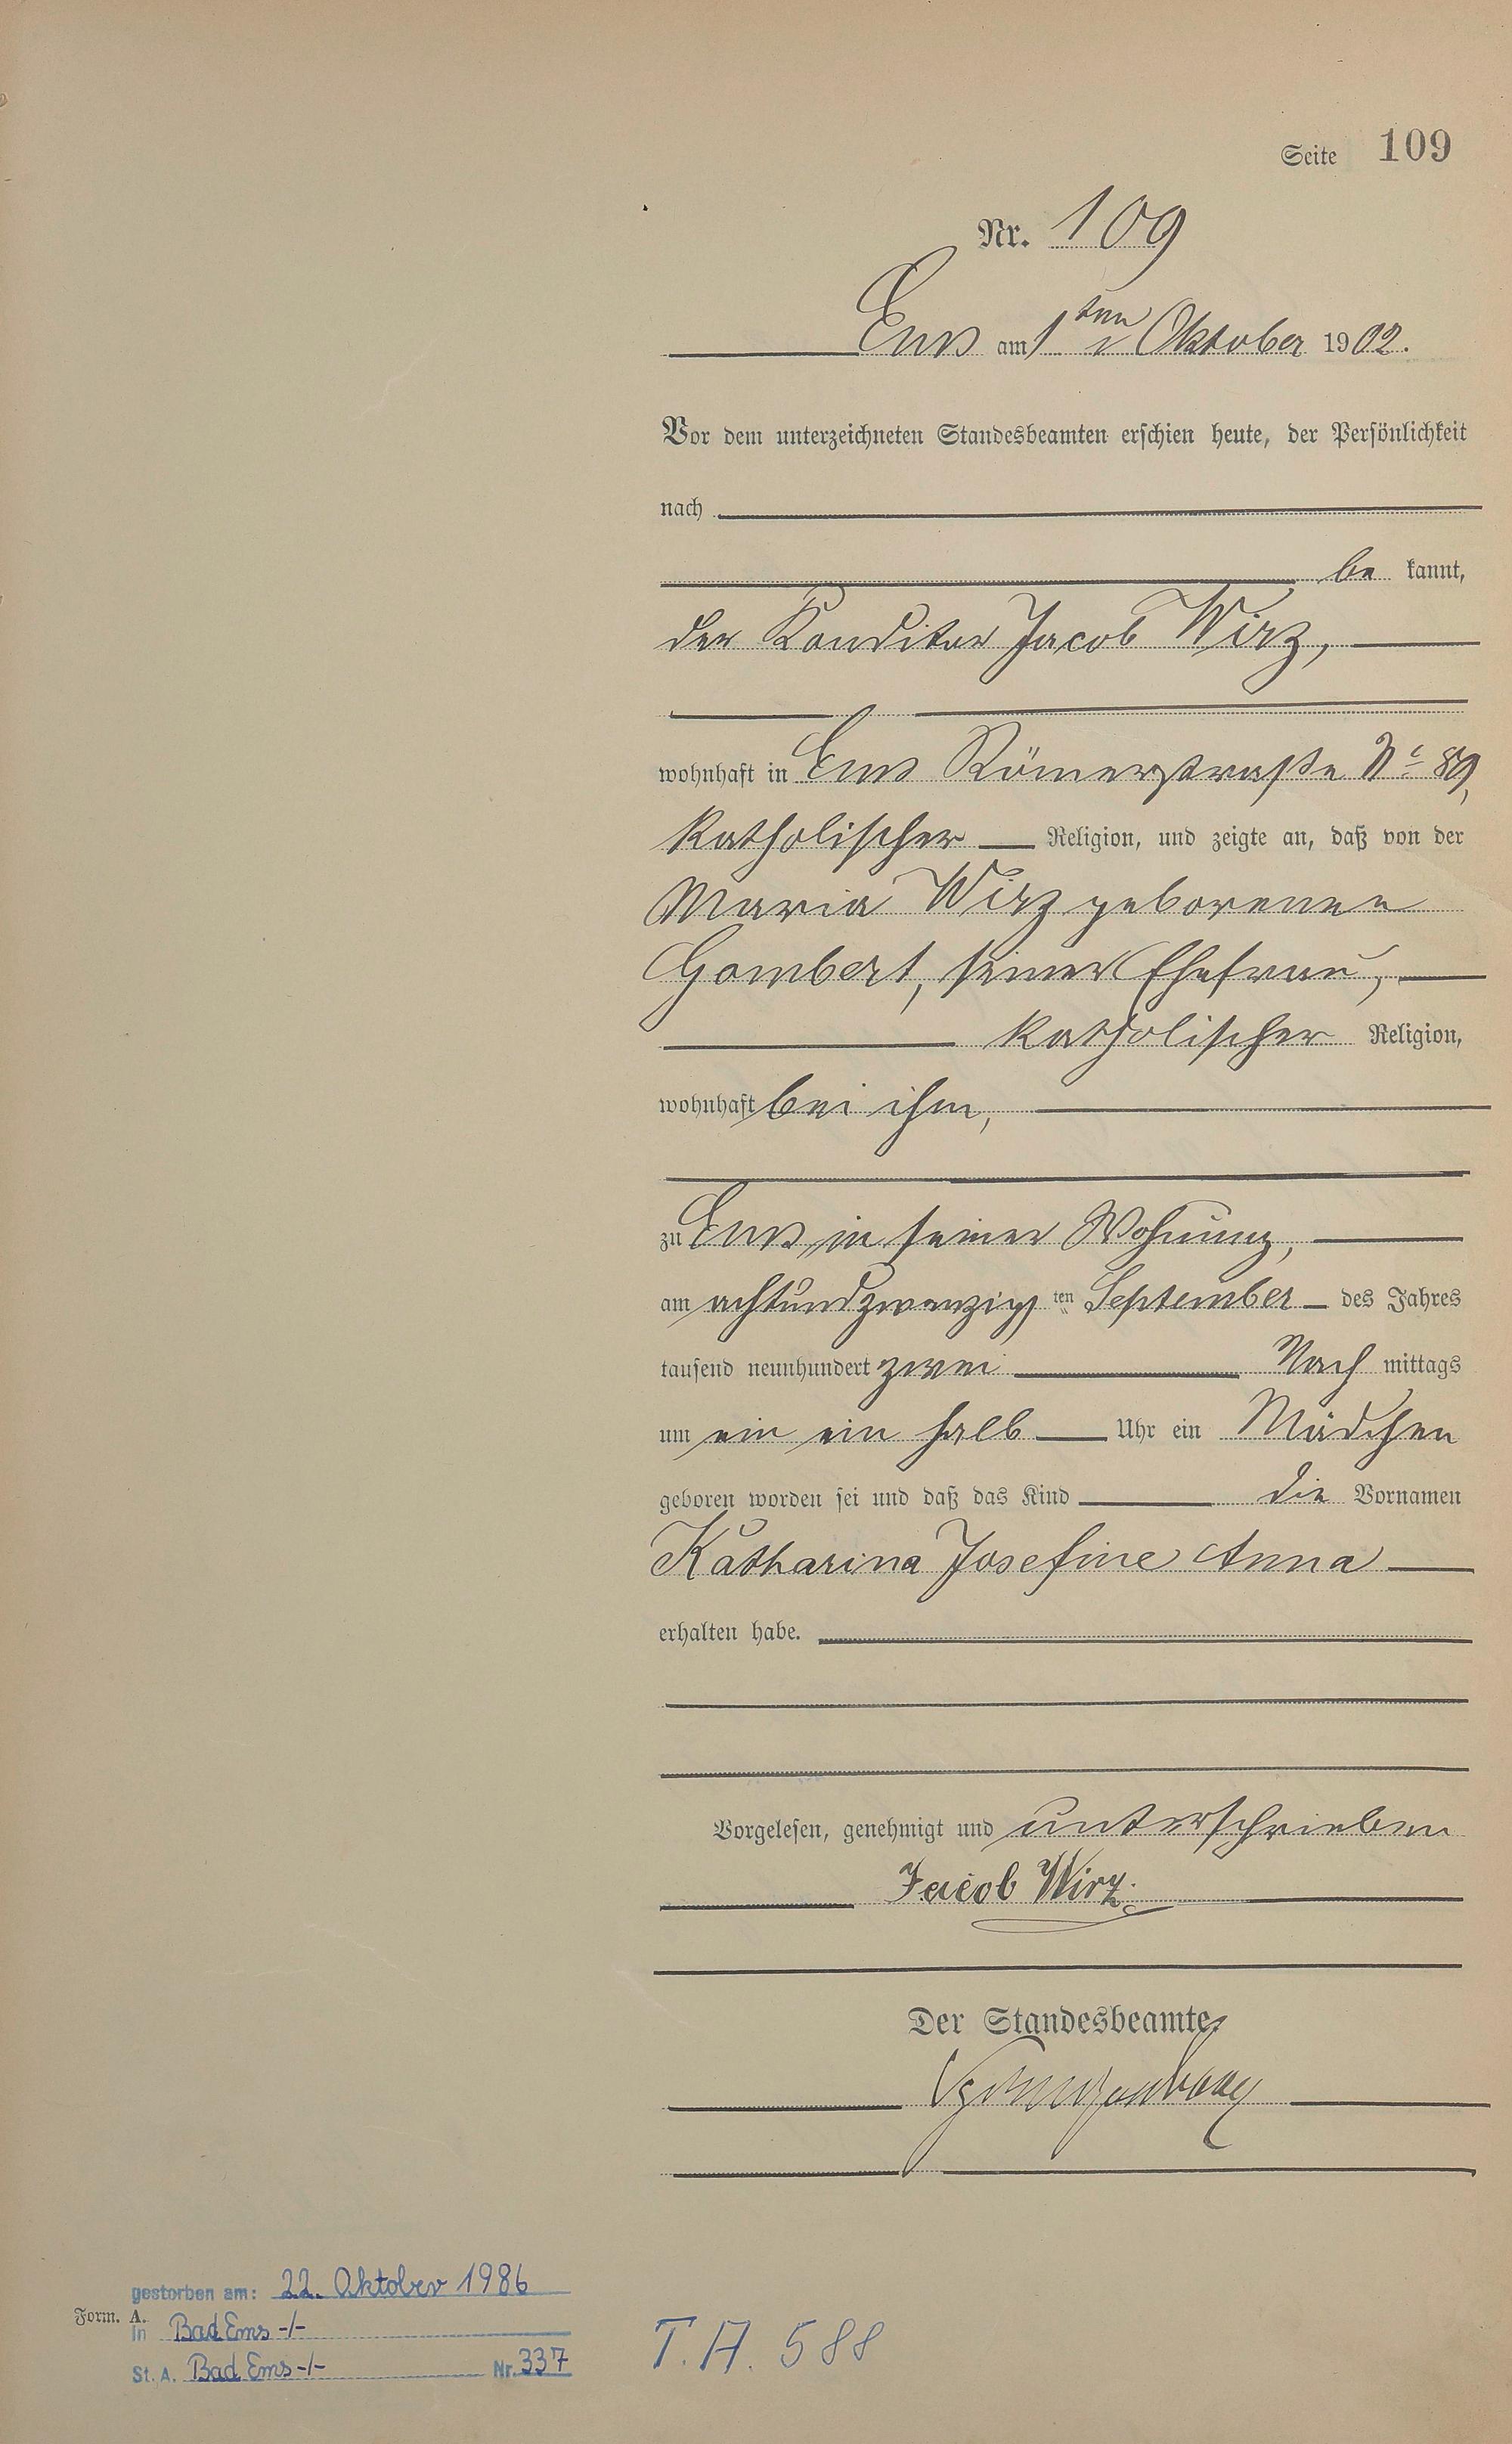 Seite 109
Nr. 109
Ems am 1ten Oktober 1902.
Vor dem unterzeichneten Standesbeamten erschien heute, der Persönlichkeit
nach
be kannt,
der Konditor Jacob Wirz,
wohnhaft in Ems Römerstraße No 89,
katholischer Religion, und zeigte an, daß von der
Maria Wirz geborenen
Gombert, seiner Ehefrau,
katholischer Religion,
wohnhaft bei ihm,
zu Ems in seiner Wohnung,
am achtundzwanzigsten September des Jahres
tausend neunhundert zwei Nach mittags
um ein ein halb Uhr ein Mädchen
geboren worden sei und daß das Kind die Vornamen
Katharina Josefine Anna
erhalten habe.
Vorgelesen, genehmigt und unterschrieben
Jacob Wirz.
Der Standesbeamte
gestorben am: 22. Oktober 1986
Form. A.
in Bad Ems -/-
St. A. Bad Ems -/- Nr. 337
T. A. 588